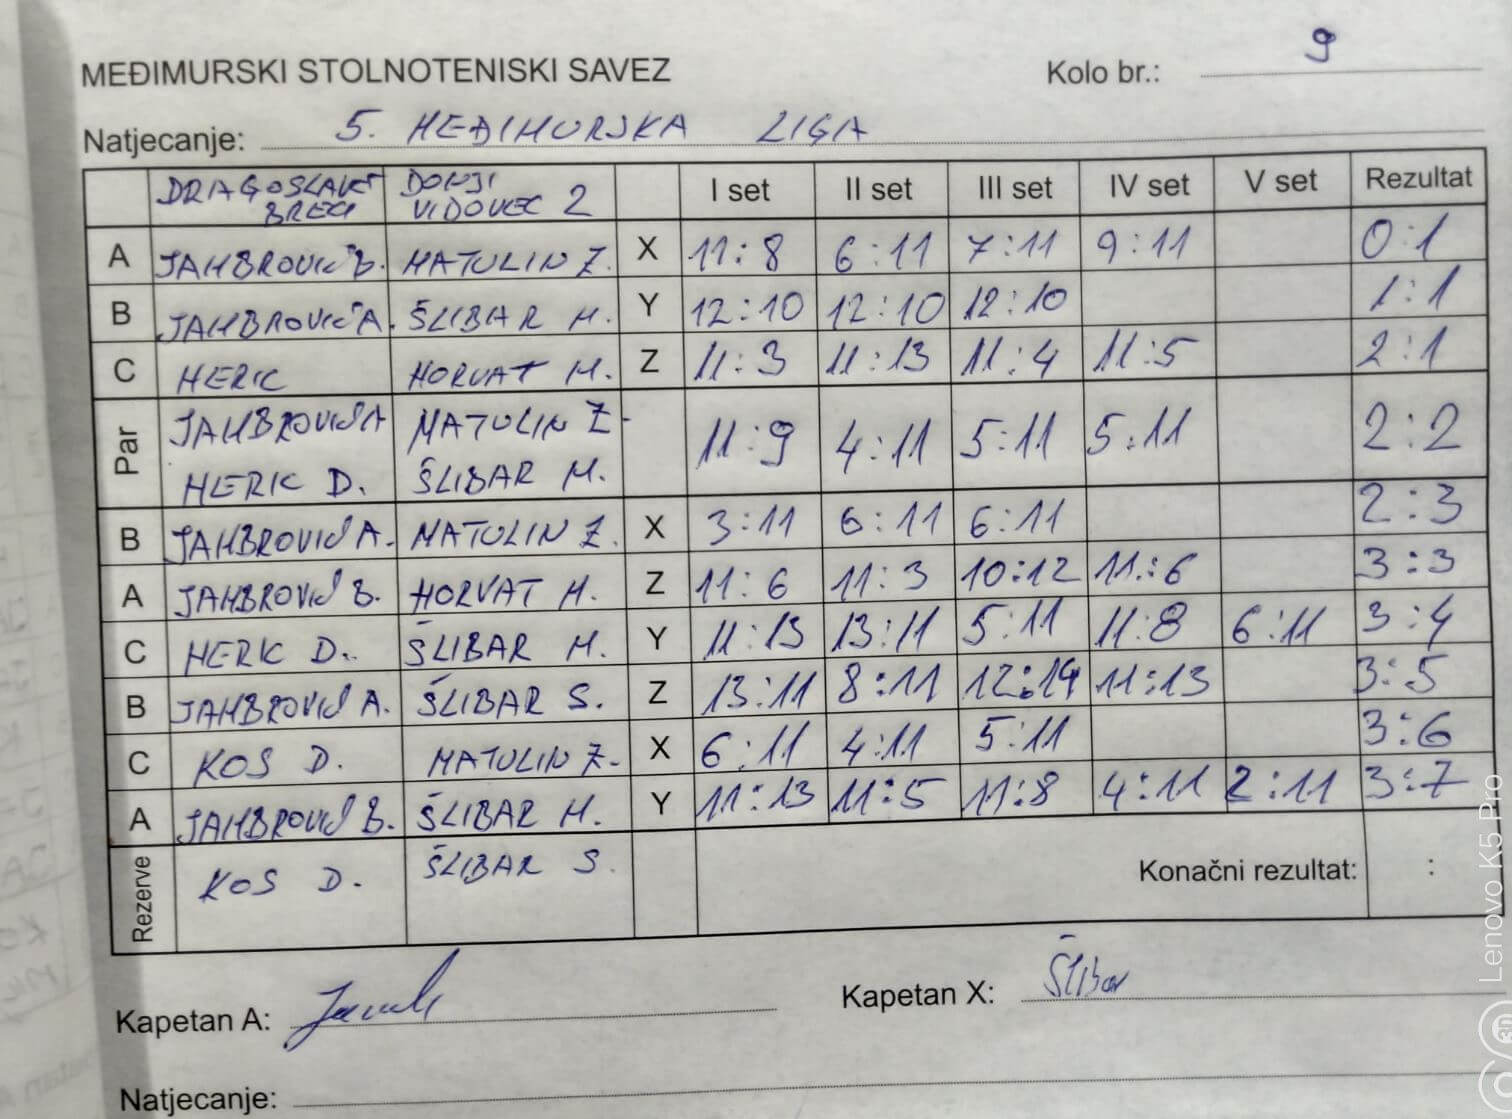 MEĐIMURSKI STOLNOTENISKI SAVEZ Kolo br.: 9
Natjecanje: 5. MEĐIMURSKA LIGA
DRAGOSLAVEC BREG DONJI VIDOVEC 2 I set II set III set IV set V set Rezultat
A JAMBROVIĆ B. MATULIN Z. X 11:8 6:11 7:11 9:11 0:1
B JAMBROVIĆ A. ŠLIBAR M. Y 12:10 12:10 12:10 1:1
C HERIC HORVAT M. Z 11:3 11:13 11:4 11:5 2:1
Par JAMBROVIĆ A MATULIN Z. 11:9 4:11 5:11 5:11 2:2
HERIC D. ŠLIBAR M.
B JAMBROVIĆ A. MATULIN Z. X 3:11 6:11 6:11 2:3
A JAMBROVIĆ B. HORVAT M. Z 11:6 11:3 10:12 11:6 3:3
C HERIC D. ŠLIBAR M. Y 11:13 13:11 5:11 11:8 6:11 3:4
B JAMBROVIĆ A. ŠLIBAR S. Z 13:11 8:11 12:14 11:13 3:5
C KOS D. MATULIN Z. X 6:11 4:11 5:11 3:6
A JAMBROVIĆ B. ŠLIBAR M. Y 11:13 11:5 11:8 4:11 2:11 3:7
Rezerve KOS D. ŠLIBAR S. Konačni rezultat: :
Kapetan A: Kapetan X: Šlibar
Natjecanje:
Lenovo K5 Pro